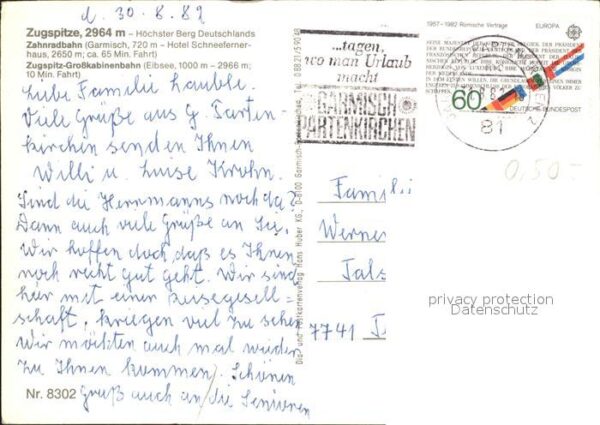 d. 30.8.82
Zugspitze, 2964 m – Höchster Berg Deutschlands
Zahnradbahn (Garmisch, 720 m – Hotel Schneeferner-
haus, 2650 m; ca. 65 Min. Fahrt)
Zugspitz-Großkabinenbahn (Eibsee, 1000 m – 2966 m;
10 Min. Fahrt)
Liebe Familie Lauble.
Viele Grüße aus G. Parten-
kirchen senden Ihnen
Willi u. Luise Krohn.
Sind die Herrmanns noch da?
Dann auch viele Grüße an Sie.
Wir hoffen doch, daß es Ihnen
noch recht gut geht. Wir sind
hier mit einer Reisegesell=
schaft, kriegen viel zu sehen
Wir möchten auch mal wieder
zu Ihnen kommen. Schönen
Gruß auch an die Senioren
Nr. 8302
Dia- und Postkartenverlag Hans Huber KG, D-8100 Garmisch-Partenkirchen
...tagen,
wo man Urlaub
macht
GARMISCH
PARTENKIRCHEN
81
1957-1982 Römische Verträge
EUROPA
60
DEUTSCHE BUNDESPOST
0,50-
Famili
Werne
Tals
7741 T
privacy protection
Datenschutz